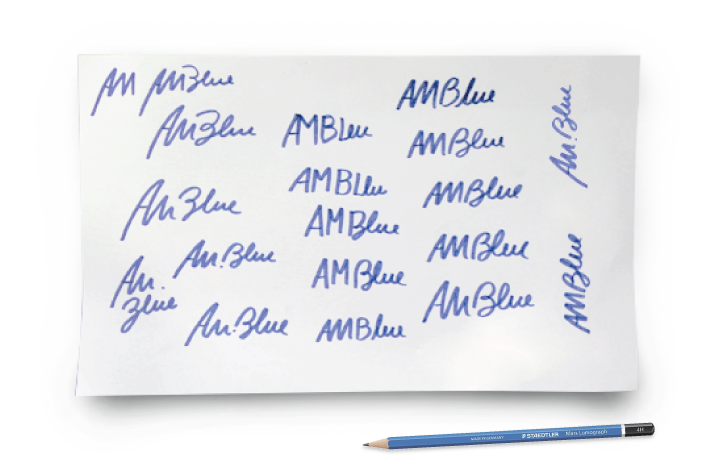 AM AMBlue
AMBlue
AMBlue
AM.Blue
AM.
Blue
AM.Blue
AMBLue
AMBLue
AMBlue
AMBlue
AMBlue
AMBlue
AMBlue
AMBlue
AMBlue
AMBlue
AM.Blue
AMBlue
MADE IN GERMANY STAEDTLER Mars Lumograph 4H